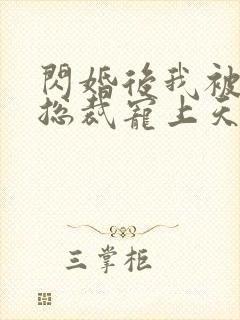 閃婚後我被
總裁寵上天
三掌柜